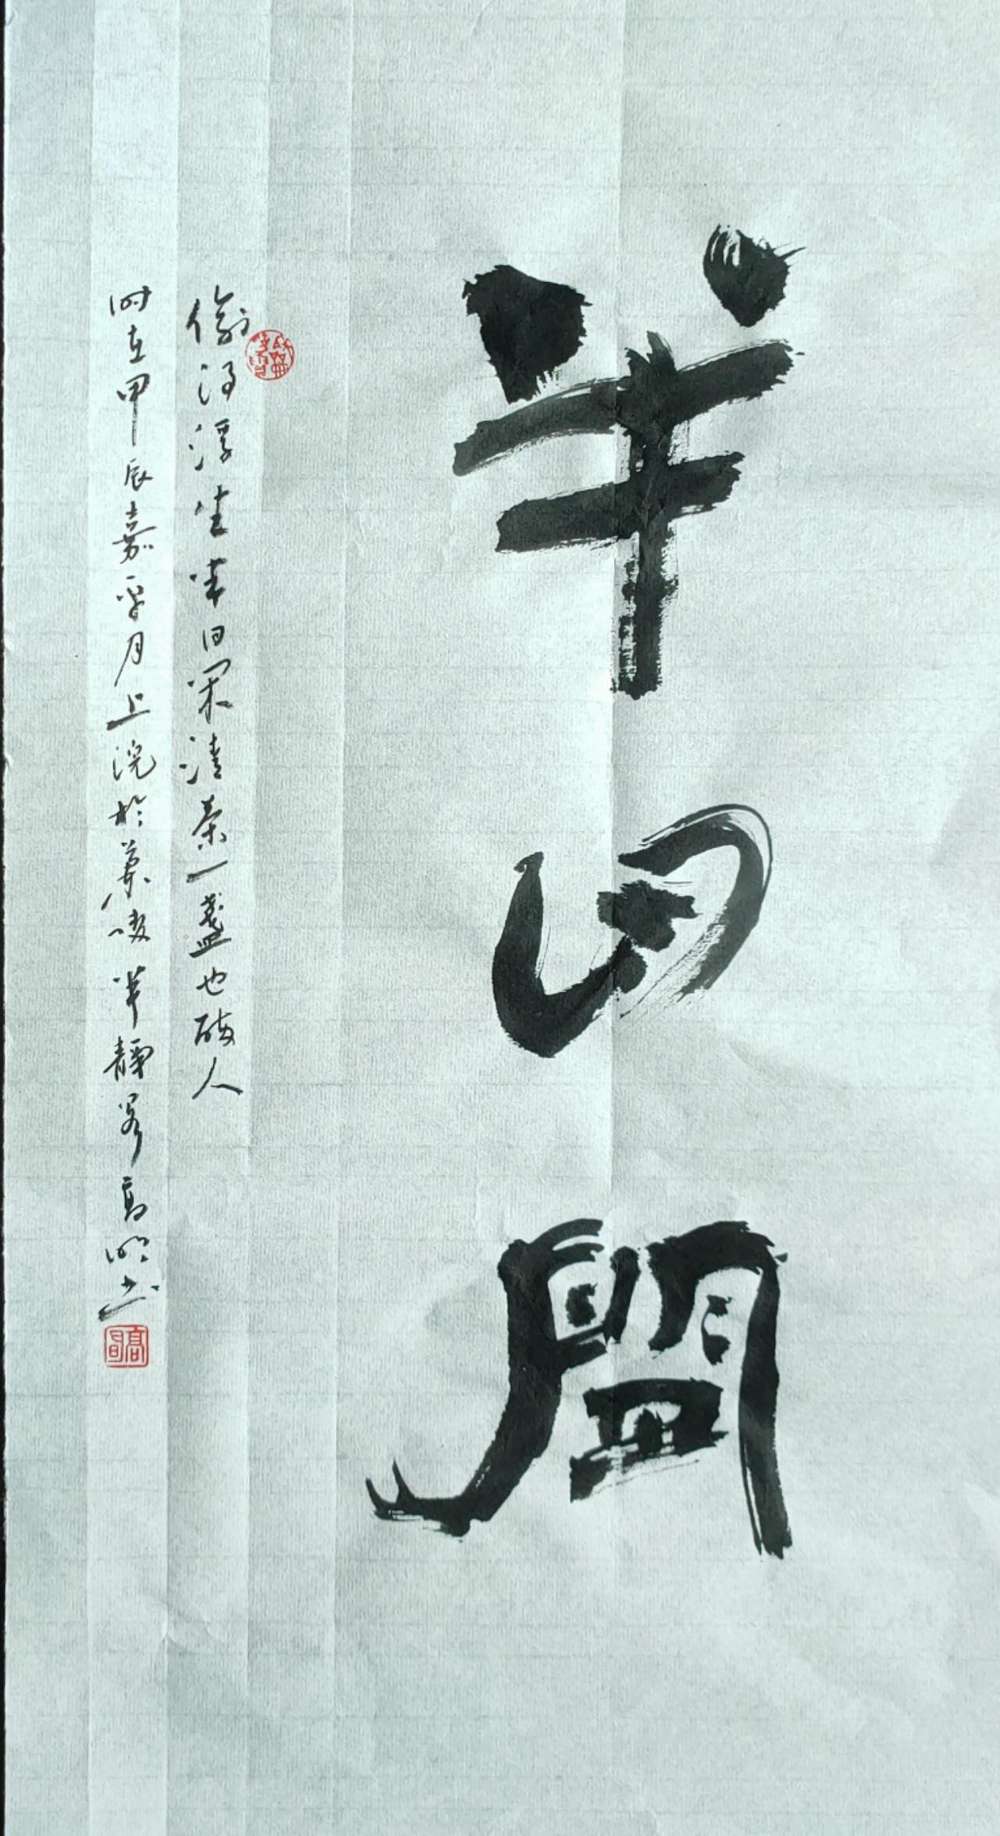 半日閒
偷得浮生半日閑清茶一盞也醉人
时在甲辰嘉平月上浣於蘭陵半靜居高明书